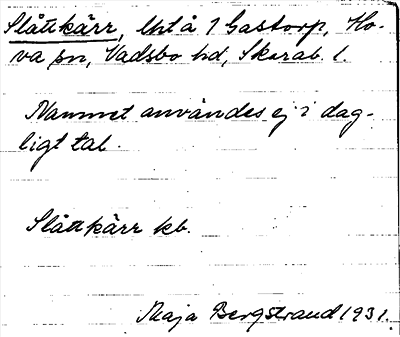 Slåttkärr, lht å 1 Gastorp, Ho-
va sn, Vadsbo hd, Skarab. l.
Namnet användes ej i dag-
ligt tal.
Slåttkärr kb.
Maja Bergstrand 1931.